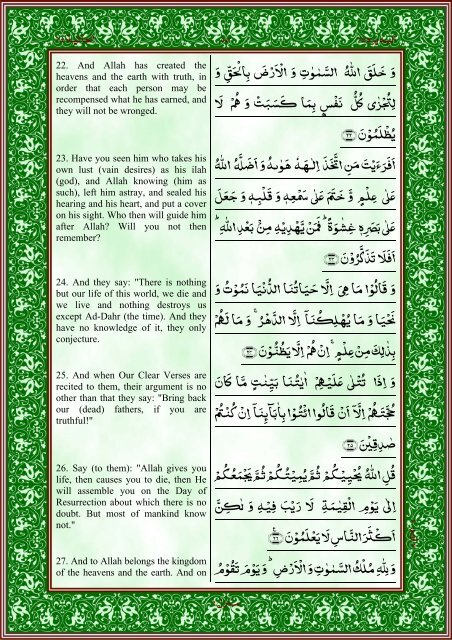 22. And Allah has created the
heavens and the earth with truth, in
order that each person may be
recompensed what he has earned, and
they will not be wronged.
وَ خَلَقَ اللّٰهُ السَّمٰوٰتِ وَ الْاَرْضَ بِالْحَقِّ وَ
لِتُجْزٰى كُلُّ نَفْسٍۭ بِمَا كَسَبَتْ وَ هُمْ لَا
يُظْلَمُوْنَ ﴿٢٢﴾
23. Have you seen him who takes his
own lust (vain desires) as his ilah
(god), and Allah knowing (him as
such), left him astray, and sealed his
hearing and his heart, and put a cover
on his sight. Who then will guide him
after Allah? Will you not then
remember?
اَفَرَءَيْتَ مَنِ اتَّخَذَ اِلٰهَهٗ هَوٰىهُ وَ اَضَلَّهُ اللّٰهُ
عَلٰى عِلْمٍ وَّ خَتَمَ عَلٰى سَمْعِهٖ وَ قَلْبِهٖ وَ جَعَلَ
عَلٰى بَصَرِهٖ غِشٰوَةً ؕ فَمَنْ يَّهْدِيْهِ مِنْۢ بَعْدِ اللّٰهِ ؕ
اَفَلَا تَذَكَّرُوْنَ ﴿٢٣﴾
24. And they say: "There is nothing
but our life of this world, we die and
we live and nothing destroys us
except Ad-Dahr (the time). And they
have no knowledge of it, they only
conjecture.
وَ قَالُوْا مَا هِيَ اِلَّا حَيَاتُنَا الدُّنْيَا نَمُوْتُ وَ
نَحْيَا وَ مَا يُهْلِكُنَاۤ اِلَّا الدَّهْرُ ۚ وَ مَا لَهُمْ
بِذٰلِكَ مِنْ عِلْمٍ ۚ اِنْ هُمْ اِلَّا يَظُنُّوْنَ ﴿٢٤﴾
25. And when Our Clear Verses are
recited to them, their argument is no
other than that they say: "Bring back
our (dead) fathers, if you are
truthful!"
وَ اِذَا تُتْلٰى عَلَيْهِمْ اٰيٰتُنَا بَيِّنٰتٍ مَّا كَانَ
حُجَّتَهُمْ اِلَّاۤ اَنْ قَالُوا ائْتُوْا بِاٰبَآئِنَاۤ اِنْ كُنْتُمْ
صٰدِقِيْنَ ﴿٢٥﴾
26. Say (to them): "Allah gives you
life, then causes you to die, then He
will assemble you on the Day of
Resurrection about which there is no
doubt. But most of mankind know
not."
قُلِ اللّٰهُ يُحْيِيْكُمْ ثُمَّ يُمِيْتُكُمْ ثُمَّ يَجْمَعُكُمْ
اِلٰى يَوْمِ الْقِيٰمَةِ لَا رَيْبَ فِيْهِ وَ لٰكِنَّ
اَكْثَرَ النَّاسِ لَا يَعْلَمُوْنَ ﴿٢٦﴾
27. And to Allah belongs the kingdom
of the heavens and the earth. And on
وَ لِلّٰهِ مُلْكُ السَّمٰوٰتِ وَ الْاَرْضِ ؕ وَ يَوْمَ تَقُوْمُ